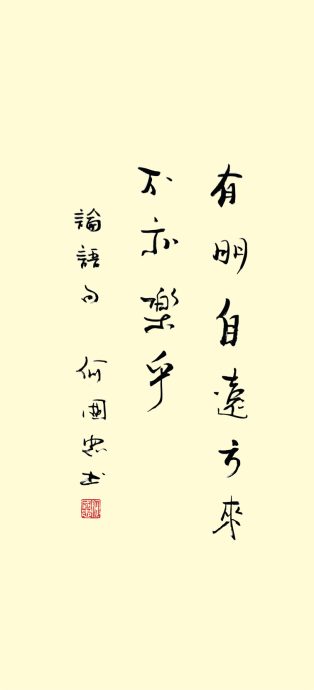 有朋自遠方來
不亦樂乎
論語句 何國忠書